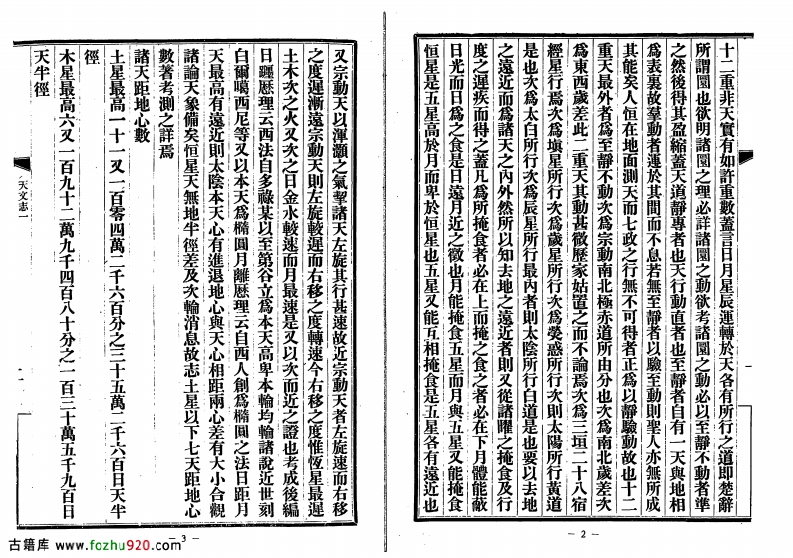 十二重非天實有如許重數蓋言日月星辰運轉於天各有所行之道即楚辭
所謂圜也欲明諸圜之理必詳諸圜之動欲考諸圜之動必以至靜不動者準
之然後得其盈縮蓋天道靜專者也天行動直者也至靜者自有一天與地相
為表裏故羣動者運於其間而不息若無至靜者以驗至動則聖人亦無所成
其能矣人恒在地面測天而七政之行無不可得者正為以靜驗動故也十二
重天最外者為至靜不動次為宗動南北極赤道所由分也次為南北歲差次
為東西歲差此二重天其動甚微歷家姑置之而不論焉次為三垣二十八宿
經星行焉次為填星所行次為歲星所行次為熒惑所行次則太陽所行黃道
是也次為太白所行次為辰星所行最內者則太陰所行白道是也要以去地
之遠近而為諸天之內外然所以知去地之遠近者則又從諸曜之掩食及行
度之遲疾而得之蓋凡為所掩食者必在上而掩之食之者必在下月體能蔽
日光而日為之食是日遠月近之徵也月能掩食五星而月與五星又能掩食
恒星是五星高於月而卑於恒星也五星又能互相掩食是五星各有遠近也
— 2 —
又宗動天以渾灝之氣挈諸天左旋其行甚速故近宗動天者左旋速而右移
之度遲漸遠宗動天則左旋較遲而右移之度轉速今右移之度惟恆星最遲
土木次之火又次之日金水較速而月最速是又以次而近之證也考成後編
日躔歷理云西法自多祿某以至第谷立為本天高卑本輪均輪諸說近世刻
白爾噶西尼等又以本天為橢圓月離歷理云自西人創為橢圓之法日距月
天最高有遠近則太陰本天心有進退地心與天心相距兩心差有大小合觀
諸論天象備矣恆星天無地半徑差及次輪消息故志土星以下七天距地心
數著考測之詳焉
諸天距地心數
土星最高一十一又一百零四萬二千六百分之三十五萬二千六百日天半
徑
木星最高六又一百九十二萬九千四百八十分之一百三十萬五千九百日
天半徑
天文志一
— 3 —
古籍库 www.fozhu920.com